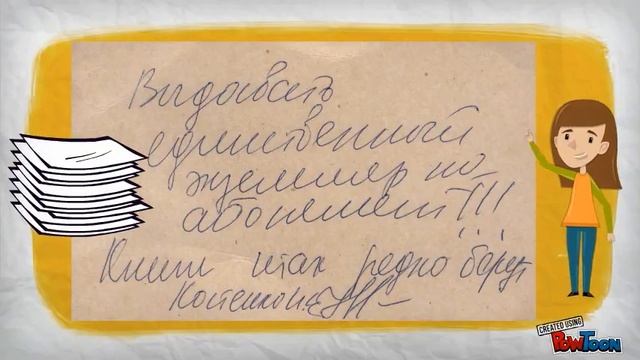 Выдавать
единственный
экземпляр на
абонемент!!!
Книги итак редко берут
CREATED USING
POWTOON